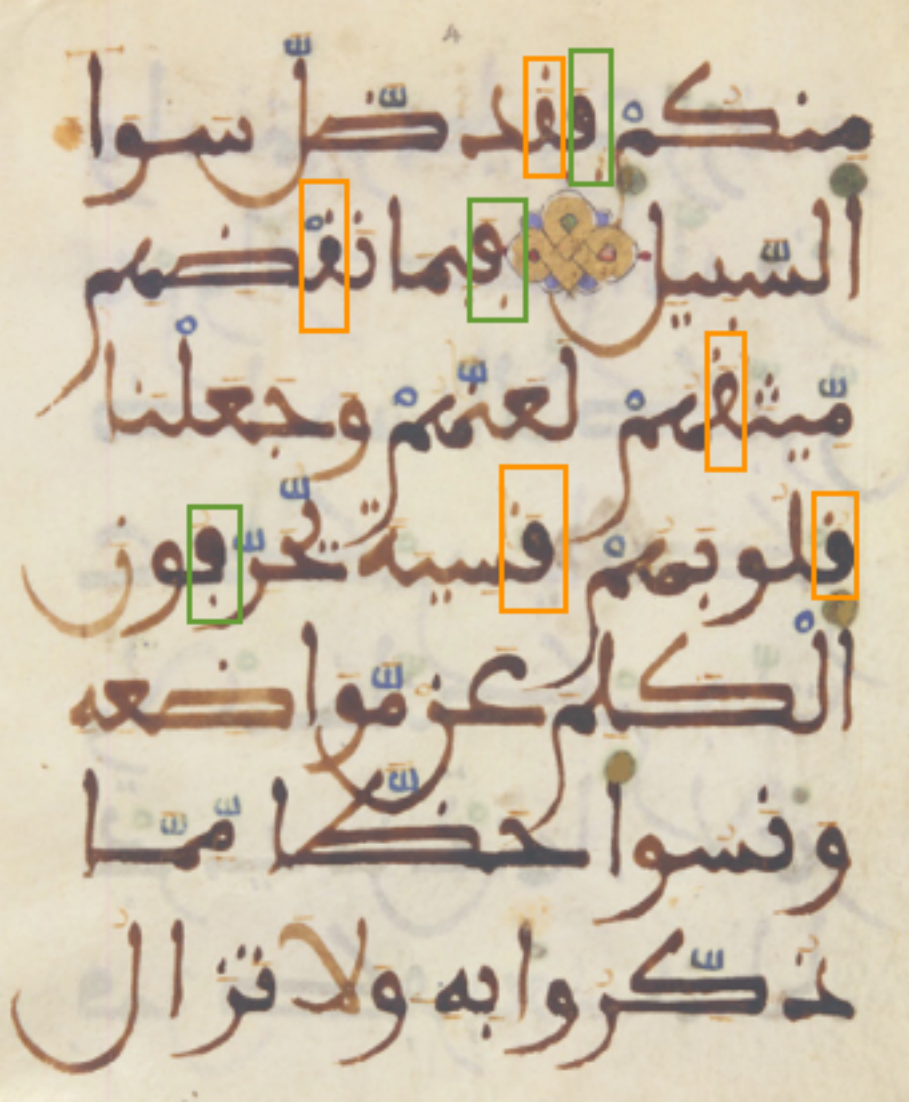 4
منكم فقد ضل سوا
السبيل فبما نقضهم
ميثقهم لعنهم وجعلنا
قلوبهم قسية يحرفون
الكلم عن مواضعه
ونسوا حظا مما
ذكروا به ولا تزال